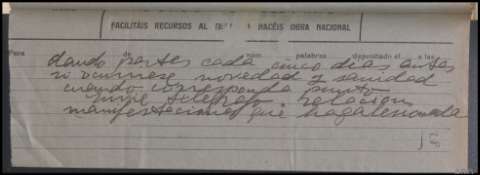 FACILITÁIS RECURSOS AL HACÉIS OBRA NACIONAL
Para de núm. palabras depositado el a las
dando partes cada cinco dias antes
si ocurriese novedad y sanidad
cuando corresponda punto
relacion
manifestaciones que haga